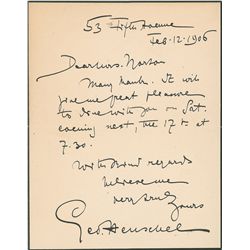 53 Fifth Avenue
Feb. 12. 1906
Dear Mrs. Norton
Many thanks. It will
give me great pleasure
to dine with you on Sat.
evening next, the 17th at
7.30.
With kind regards
believe me
very truly
Yours
Geo. Henschel